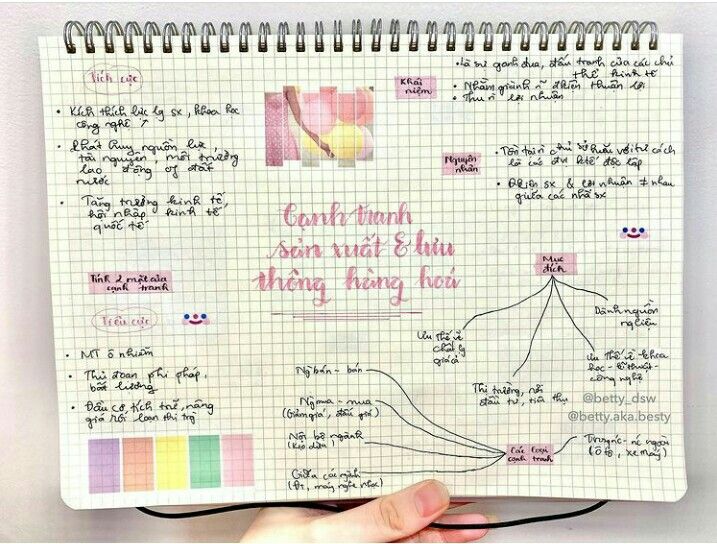 Cạnh tranh
sản xuất & lưu
thông hàng hoá
Khái
niệm
• là sự ganh đua, đấu tranh của các chủ
thể kinh tế
• Nhằm giành n điều kiện thuận lợi
• Thu n lợi nhuận
Nguyên
nhân
• Tồn tại n chủ sở hữu với tư cách
là các đvị k.tế độc lập
• Đkiện sx & lợi nhuận ≠ nhau
giữa các nhà sx
Mục
đích
Dành nguồn
nguyên
Ưu thế về khoa
học - kĩ thuật -
công nghệ
Thị trường, nơi
đầu tư, tiêu thụ
Ưu thế về
chất lg
giá cả
Các loại
cạnh tranh
Ng bán - bán
Ng mua - mua
(Giảm giá, đấu giá)
Nội bộ ngành
(Kéo dừa)
Giữa các ngành
(Đt, máy nghe nhạc)
Trong nc - nc ngoài
(Ô tô, xe máy)
Tính 2 mặt của
cạnh tranh
Tích cực
• Kích thích lực lg sx, khoa học
công nghệ ↑
• Phát huy nguồn lực,
tài nguyên, môi trường
lao động of đất
nước
• Tăng trưởng kinh tế,
hội nhập kinh tế
quốc tế
Tiêu cực
• MT ô nhiễm
• Thủ đoạn phi pháp,
bất lương
• Đầu cơ, tích trữ, nâng
giá rối loạn thị trg
@betty_dsw
@betty.aka.besty